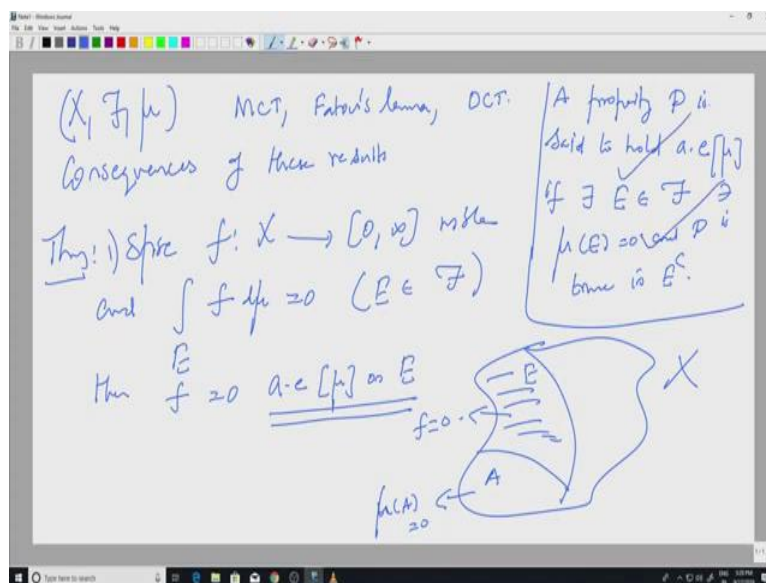 Note1 - Windows Journal
File Edit View Insert Actions Tools Help
(X, F, μ) MCT, Fatou's lemma, DCT.
Consequences of these results
Thm: 1) Spse f: X → [0, ∞] mble
and ∫_E f dμ = 0 (E ∈ F)
then f = 0 a.e [μ] on E
A property P is
said to hold a.e [μ]
if ∃ E ∈ F ∋
μ(E) = 0 and P is
true in E^c.
X
E
f=0
A
μ(A)
=0
1/1
Type here to search
ENG